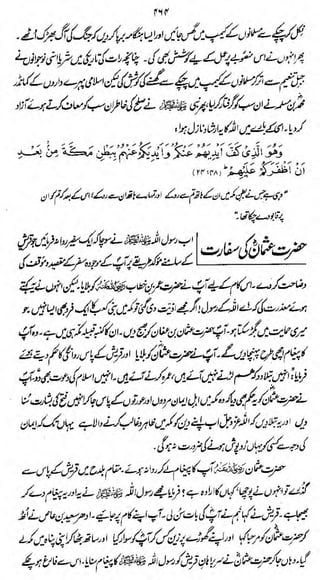 ۴۶۴
نکل کر چپکے سے مسلمانوں کے کیمپ میں گھس جائیں اور ایسا ہنگامہ برپا کر دیں کہ جنگ کی آگ بھڑک اٹھے۔
پھر انہوں نے اس منصوبے پر عمل کے لیے کوشش بھی کی۔ چنانچہ رات کی تاریکی میں ستر یا اسی نوجوانوں نے
جبل تنعیم سے اتر کر مسلمانوں کے کیمپ میں چپکے سے گھسنے کی کوشش کی لیکن اسلامی پہرے داروں کے کمانڈر
محمد بن مسلمہ نے ان سب کو گرفتار کر لیا، پھر نبی ﷺ نے صلح کی خاطر ان سب کو معاف کرتے ہوئے آزاد
کر دیا۔ اسی کے بارے میں اللہ کا یہ ارشاد نازل ہوا:
وَهُوَ الَّذِي كَفَّ أَيْدِيَهُمْ عَنكُمْ وَأَيْدِيَكُمْ عَنْهُم بِبَطْنِ مَكَّةَ مِنۢ بَعْدِ
أَنْ أَظْفَرَكُمْ عَلَيْهِمْ (۲۴:۴۸)
"وہی ہے جس نے بطن مکہ میں ان کے ہاتھ تم سے روکے اور تمہارے ہاتھ ان سے روکے اس کے بعد کہ تم کو ان
پر قابو دے چکا تھا۔"
حضرت عثمانؓ کی سفارت
اب رسول اللہ ﷺ نے سوچا کہ ایک سفیر روانہ فرمائیں جو قریش
کے سامنے مؤکد طریقے پر آپ کے موجودہ سفر کے مقصد و موقف کی
وضاحت کر دے۔ اس کام کے لیے آپ نے حضرت عمر بن خطاب کو بلایا لیکن انہوں نے یہ کہتے
ہوئے معذرت کی کہ اے اللہ کے رسول! اگر مجھے اذیت دی گئی تو مکہ میں بنی کعب کا ایک فرد بھی ایسا نہیں جو
میری حمایت میں بگڑ سکتا ہو۔ آپ حضرت عثمان بن عفان کو بھیج دیں۔ ان کا کنبہ قبیلہ مکہ ہی میں ہے۔ وہ آپ
کا پیغام اچھی طرح پہنچا دیں گے۔ آپ نے حضرت عثمان کو بلایا اور قریش کے پاس روانگی کا حکم دیتے ہوئے
فرمایا: انہیں بتلا دو کہ ہم لڑنے نہیں آئے ہیں، عمرہ کرنے آئے ہیں۔ انہیں اسلام کی دعوت بھی دو۔ آپ
نے حضرت عثمان کو یہ حکم بھی دیا کہ وہ مکہ میں اہل ایمان مردوں اور عورتوں کے پاس جا کر انہیں فتح کی بشارت سنا
دیں اور یہ بتلا دیں کہ اللہ عز و جل اب اپنے دین کو مکہ میں ظاہر و غالب کرنے والا ہے یہاں تک کہ ایمان
کی وجہ سے کسی کو یہاں روپوش ہونے کی ضرورت نہ ہوگی۔
حضرت عثمان آپ کا پیغام لے کر روانہ ہوئے۔ مقام بلدح میں قریش کے پاس سے
گذرے تو انہوں نے پوچھا: کہاں کا ارادہ ہے؟ فرمایا مجھے رسول اللہ ﷺ نے یہ اور یہ پیغام دے کر
بھیجا ہے۔ قریش نے کہا: ہم نے آپ کی بات سن لی۔ آپ اپنے کام پر جائیے۔ ادھر سعید بن عاص نے اٹھ
کر حضرت عثمان کو مرحبا کہا اور اپنے گھوڑے پر زین کس کر آپ کو سوار کیا اور ساتھ بٹھا کر اپنی پناہ میں مکہ لے
گیا۔ وہاں جا کر حضرت عثمان نے سربراہان قریش کو رسول اللہ ﷺ کا پیغام سنایا۔ اس سے فارغ ہو چکے